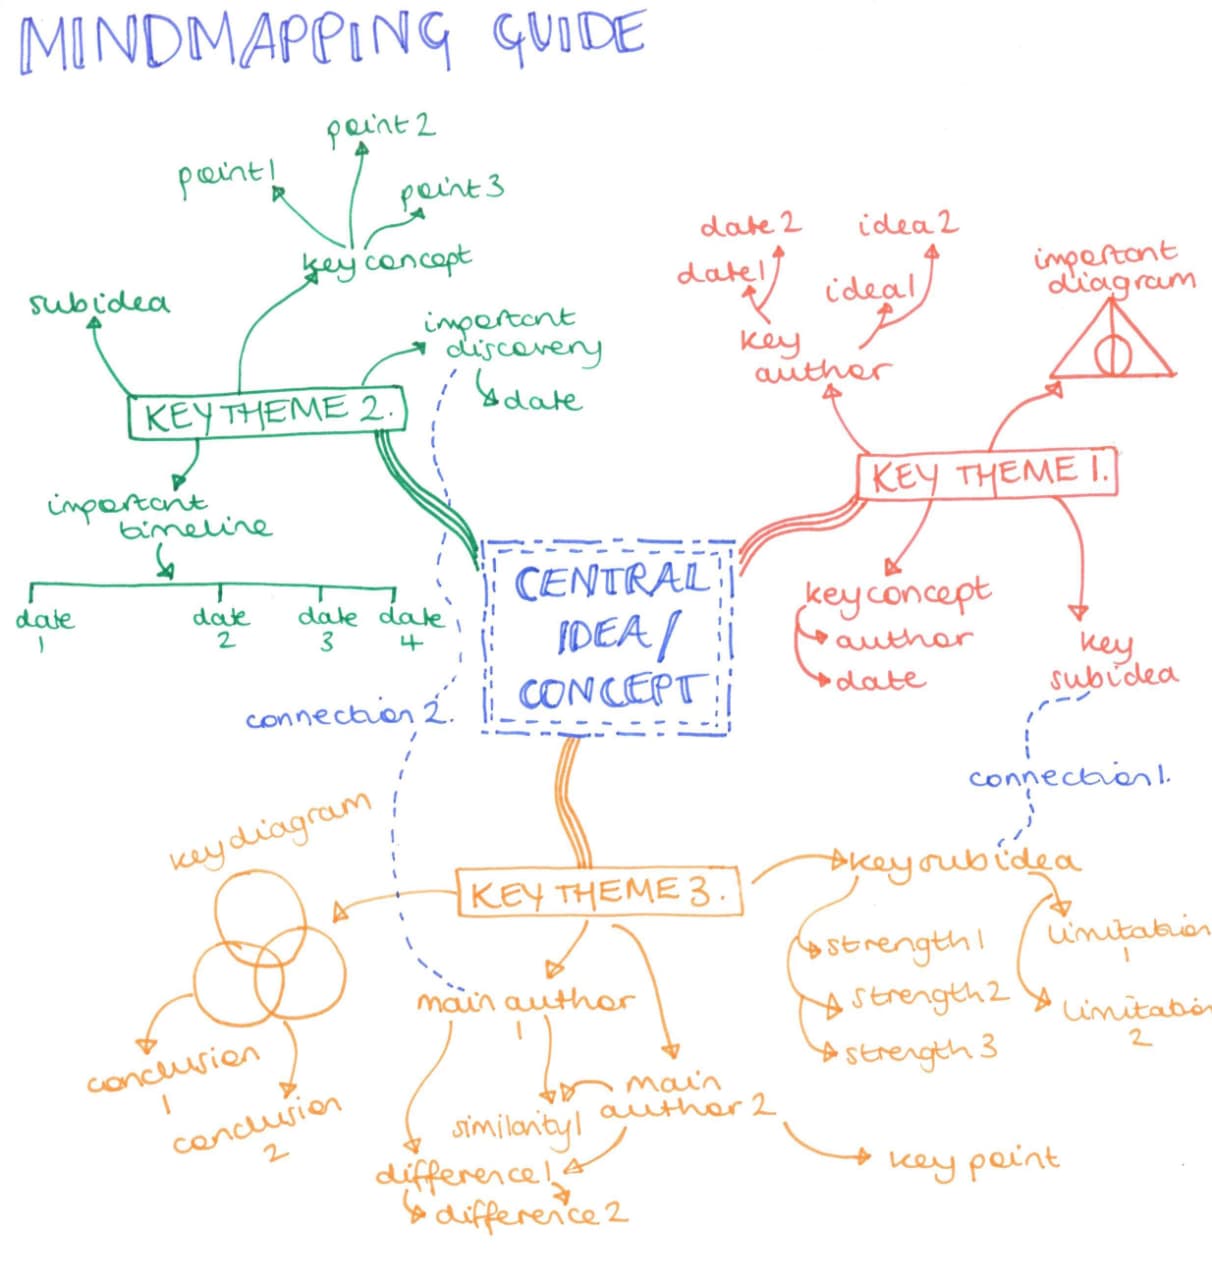 MINDMAPPING GUIDE
point 2
point 1
point 3
key concept
subidea
important
discovery
date
KEY THEME 2.
important
timeline
date
1
date
2
date
3
date
4
date 2
idea 2
date 1
idea 1
key
author
important
diagram
KEY THEME 1.
key concept
author
date
key
subidea
CENTRAL
IDEA/
CONCEPT
connection 2.
connection 1.
key diagram
conclusion
1
conclusion
2
KEY THEME 3.
key subidea
strength 1
strength 2
strength 3
limitation
1
limitation
2
main author
1
main
author 2
similarity 1
difference 1
difference 2
key point